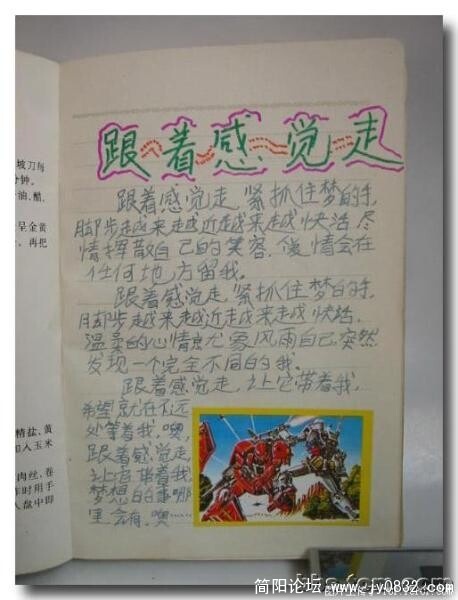 坡刀每
分钟。
油,醋,
呈金黄
。再把
精盐、黄
加入玉米
肉丝,卷
作时用手
入盘中即
跟着感觉走
跟着感觉走,紧抓住梦的手,
脚步越来越近越来越快活,尽
情挥散自己的笑容,爱情会在
任何地方留我。
跟着感觉走,紧抓住梦的手,
脚步越来越近越来越快活,
温柔的心情尤象风雨自己突然
发现一个完全不同的我。
跟着感觉走,让它带着我,
希望就在不远
处等着我,噢,
跟着感觉走,
让它带着我,
梦想的事哪
里会有,噢……
简阳论坛 ----www.jy0832.com